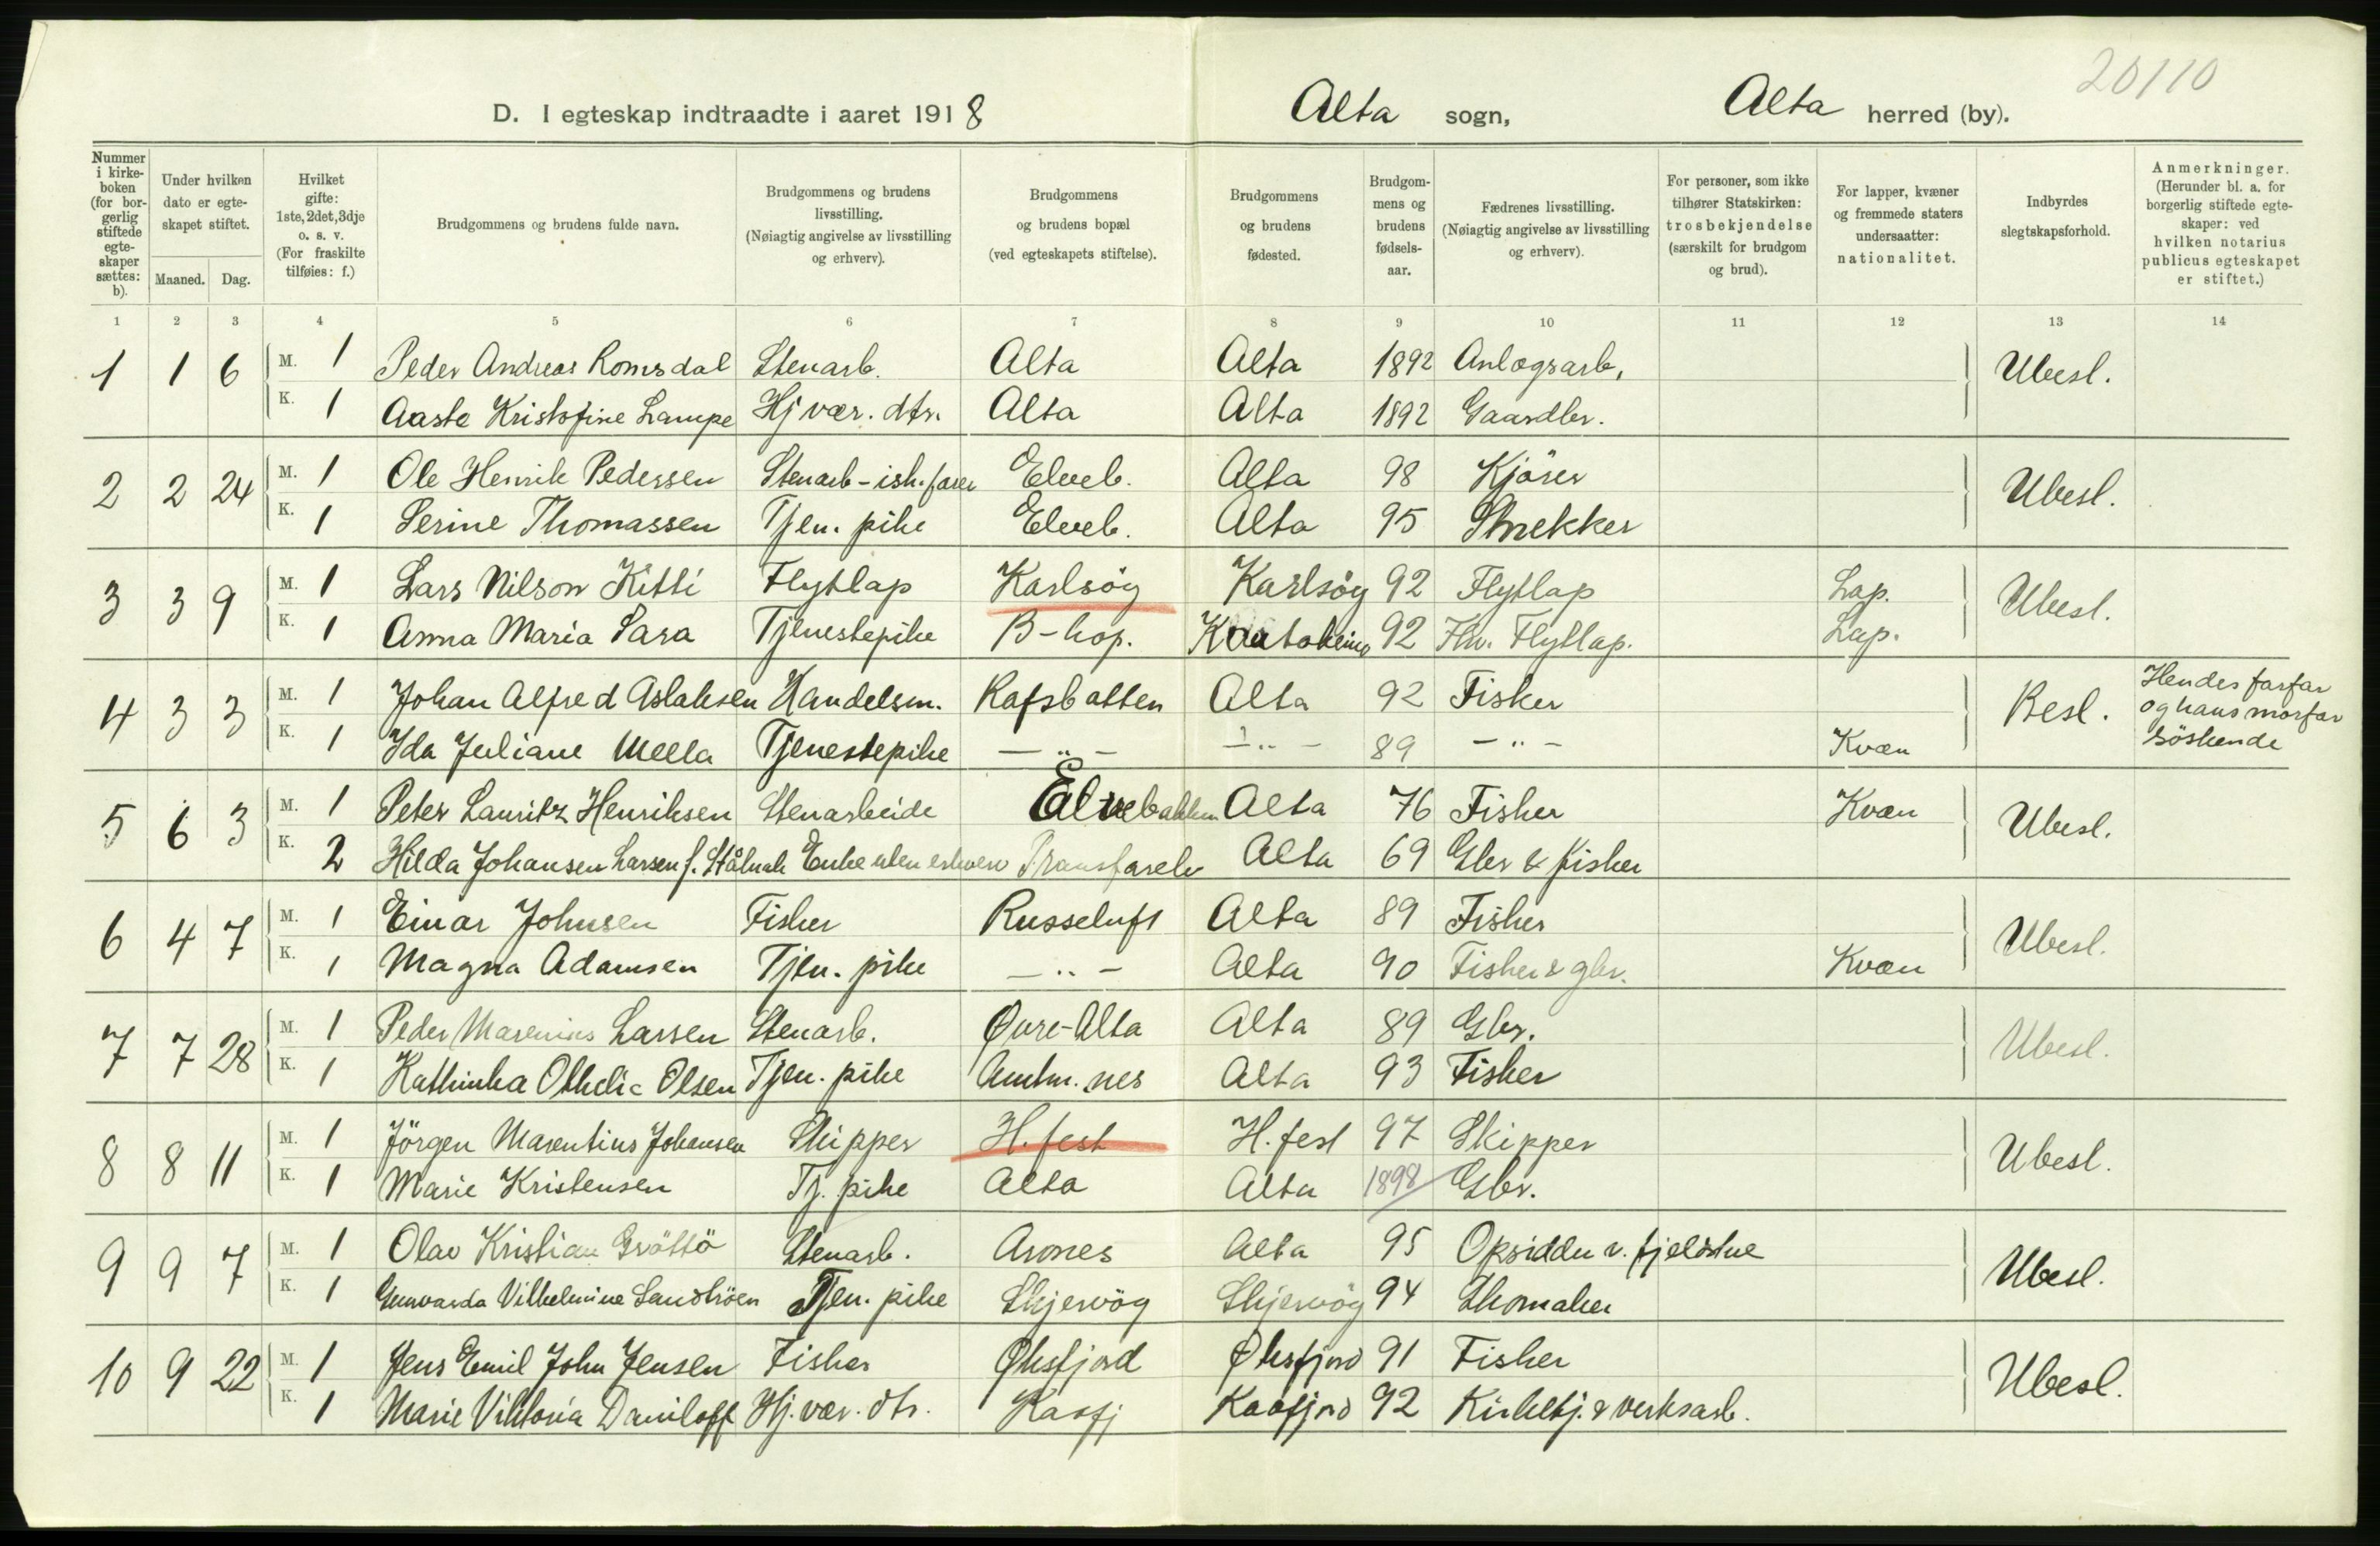 20110
D. I egteskap indtraadte i aaret 1918 Alta sogn, Alta herred (by).
Nummer i kirke-boken (for bor-gerlig stiftede egte-skaper sættes: b).
Under hvilken dato er egte-skapet stiftet.
Maaned. Dag.
Hvilket gifte: 1ste, 2det, 3dje o. s. v. (For fraskilte tilføies: f.)
Brudgommens og brudens fulde navn.
Brudgommens og brudens livsstilling. (Nøiagtig angivelse av livsstilling og erhverv).
Brudgommens og brudens bopæl (ved egteskapets stiftelse).
Brudgommens og brudens fødested.
Brudgom-mens og brudens fødsels-aar.
Fædrenes livsstilling. (Nøiagtig angivelse av livsstilling og erhverv).
For personer, som ikke tilhører Statskirken: trosbekjendelse (særskilt for brudgom og brud).
For lapper, kvæner og fremmede staters undersaatter: nationalitet.
Indbyrdes slegtskapsforhold.
Anmerkninger. (Herunder bl. a. for borgerlig stiftede egte-skaper: ved hvilken notarius publicus egteskapet er stiftet.)
1 2 3 4 5 6 7 8 9 10 11 12 13 14
1 1 6 M. 1 Peder Andreas Romsdal Stenarb. Alta Alta 1892 Anlægsarb. Ubesl.
K. 1 Aasta Kristofine Lampe Hj vær. dtr. Alta Alta 1892 Gaardbr.
2 2 24 M. 1 Ole Henrik Pedersen Stenarb - ish. farer Elveb. Alta 98 Kjörer Ubesl.
K. 1 Serine Thomassen Tjen. pike Elveb. Alta 95 Snekker
3 3 9 M. 1 Lars Nilson Kitti Flytlap Karlsöy Karlsöy 92 Flytlap Lap. Ubesl.
K. 1 Anna Maria Sara Tjenestepike B-hop. Kautokeino 92 Flytlap. Lap.
4 3 3 M. 1 Johan Alfred Aslaksen Handelsm. Rafsbotten Alta 92 Fisker Besl. Hendes farfar
K. 1 Ida Juliane Meela Tjenestepike — " — — " — 89 — " — Kvæn og hans morfar
söskende
5 6 3 M. 1 Peter Lauritz Henriksen Stenarbeide Elvebakken Alta 76 Fisker Kvæn Ubesl.
K. 2 Hilda Johansen Larsen f. Stålnak Enke uten erhverv Transfarelv Alta 69 Gbr & fisker
6 4 7 M. 1 Einar Johnsen Fisker Russeluft Alta 89 Fisker Ubesl.
K. 1 Magna Adamsen Tjen. pike — " — Alta 90 Fisker & gbr. Kvæn
7 7 28 M. 1 Peder Marenius Larsen Stenarb. Øvre-Alta Alta 89 Gbr. Ubesl.
K. 1 Kathinka Othelie Olsen Tjen. pike Amtm. nes Alta 93 Fisker
8 8 11 M. 1 Jörgen Marentius Johansen Skipper H. fest H. fest 97 Skipper Ubesl.
K. 1 Marie Kristensen Tj. pike Alta Alta 1898 Gbr.
9 9 7 M. 1 Olav Kristian Gröttö Stenarb. Arones Alta 95 Opsidder v. fjeldstue Ubesl.
K. 1 Gunvarda Vilhelmine Tjen. pike Skjervöy Skjervöy 94 Skomaker
10 9 22 M. 1 Jens Emil John Jensen Fisker Øksfjord Øksfjord 91 Fisker Ubesl.
K. 1 Marie Viktoria Daniloff Hj. vær. dtr. Kaafj Kaafjord 92 Kirketj. & verksarb.